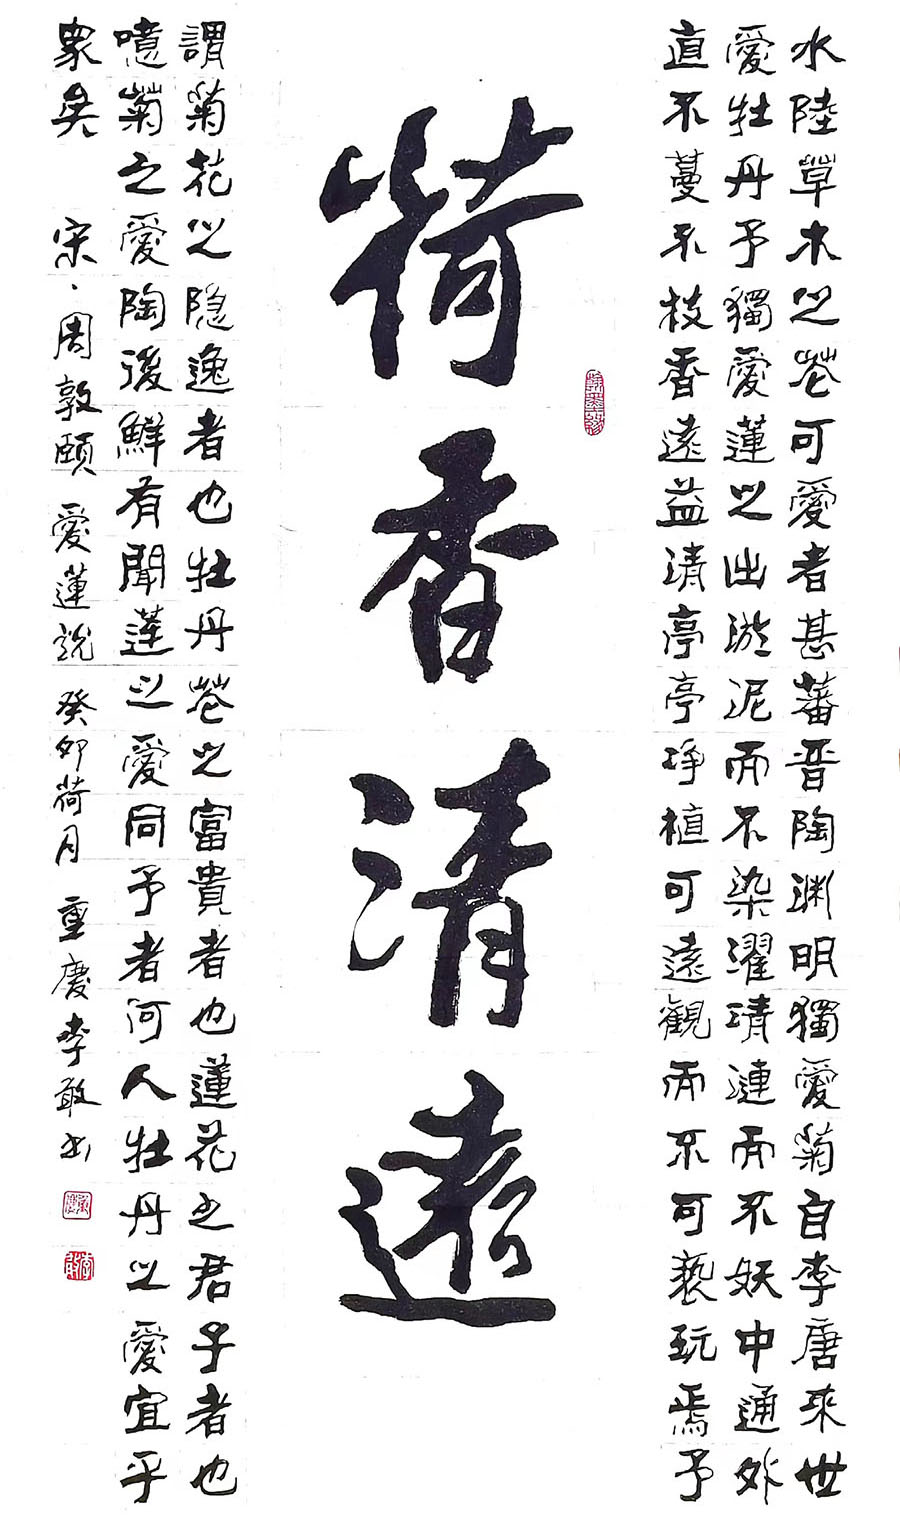 水陸草木之花可愛者甚蕃晋陶渊明獨愛菊自李唐来世
愛牡丹予獨愛蓮之出淤泥而不染濯清漣而不妖中通外
直不蔓不枝香遠益清亭亭净植可遠觀而不可褻玩焉予
荷香清遠
謂菊花之隐逸者也牡丹花之富貴者也蓮花之君子者也
噫菊之愛陶後鮮有聞蓮之愛同予者何人牡丹之愛宜乎
衆矣 宋·周敦颐 愛蓮說 癸卯荷月 重慶李敢书